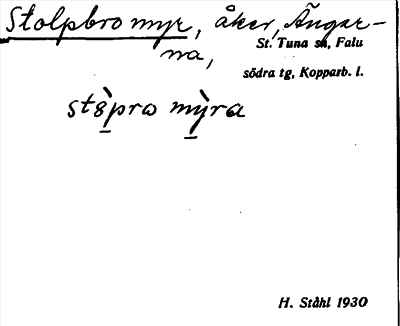 Stolpbro myr, åker, Ängar-
na,
St. Tuna sn, Falu
södra tg, Kopparb. l.
st8̀pro mỳra
H. Ståhl 1930